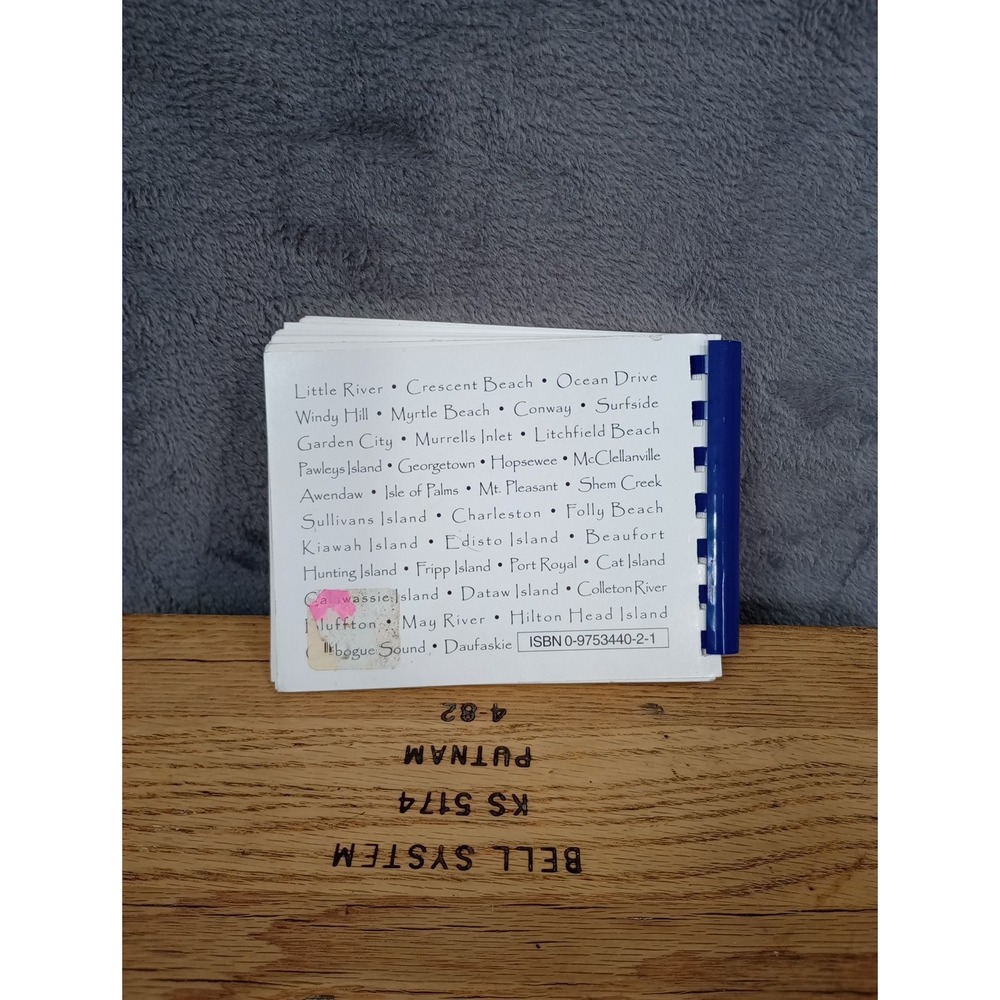 Little River • Crescent Beach • Ocean Drive
Windy Hill • Myrtle Beach • Conway • Surfside
Garden City • Murrells Inlet • Litchfield Beach
Pawleys Island • Georgetown • Hopsewee • McClellanville
Awendaw • Isle of Palms • Mt. Pleasant • Shem Creek
Sullivans Island • Charleston • Folly Beach
Kiawah Island • Edisto Island • Beaufort
Hunting Island • Fripp Island • Port Royal • Cat Island
Island • Dataw Island • Colleton River
Bluffton • May River • Hilton Head Island
Sound • Daufaskie ISBN 0-9753440-2-1
4-82
PUTNAM
KS 5174
BELL SYSTEM